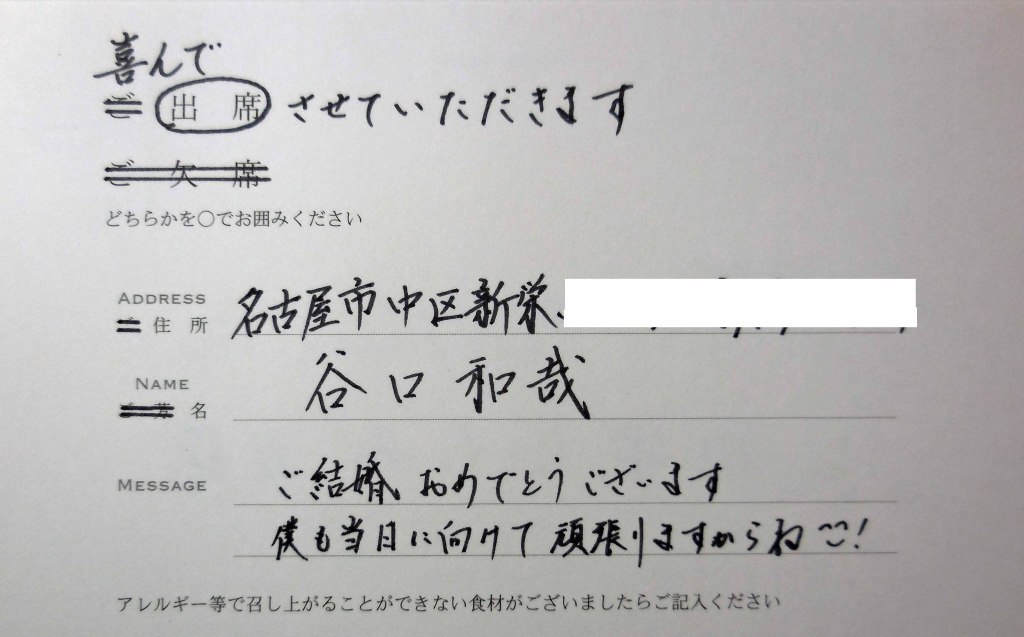 喜んで
ご 出 席 させていただきます
ご 欠 席
どちらかを〇でお囲みください
ADDRESS
ご 住 所 名古屋市中区新栄
NAME
ご 芳 名 谷口和哉
MESSAGE ご結婚おめでとうございます
僕も当日に向けて頑張りますからね!
アレルギー等で召し上がることができない食材がございましたらご記入ください